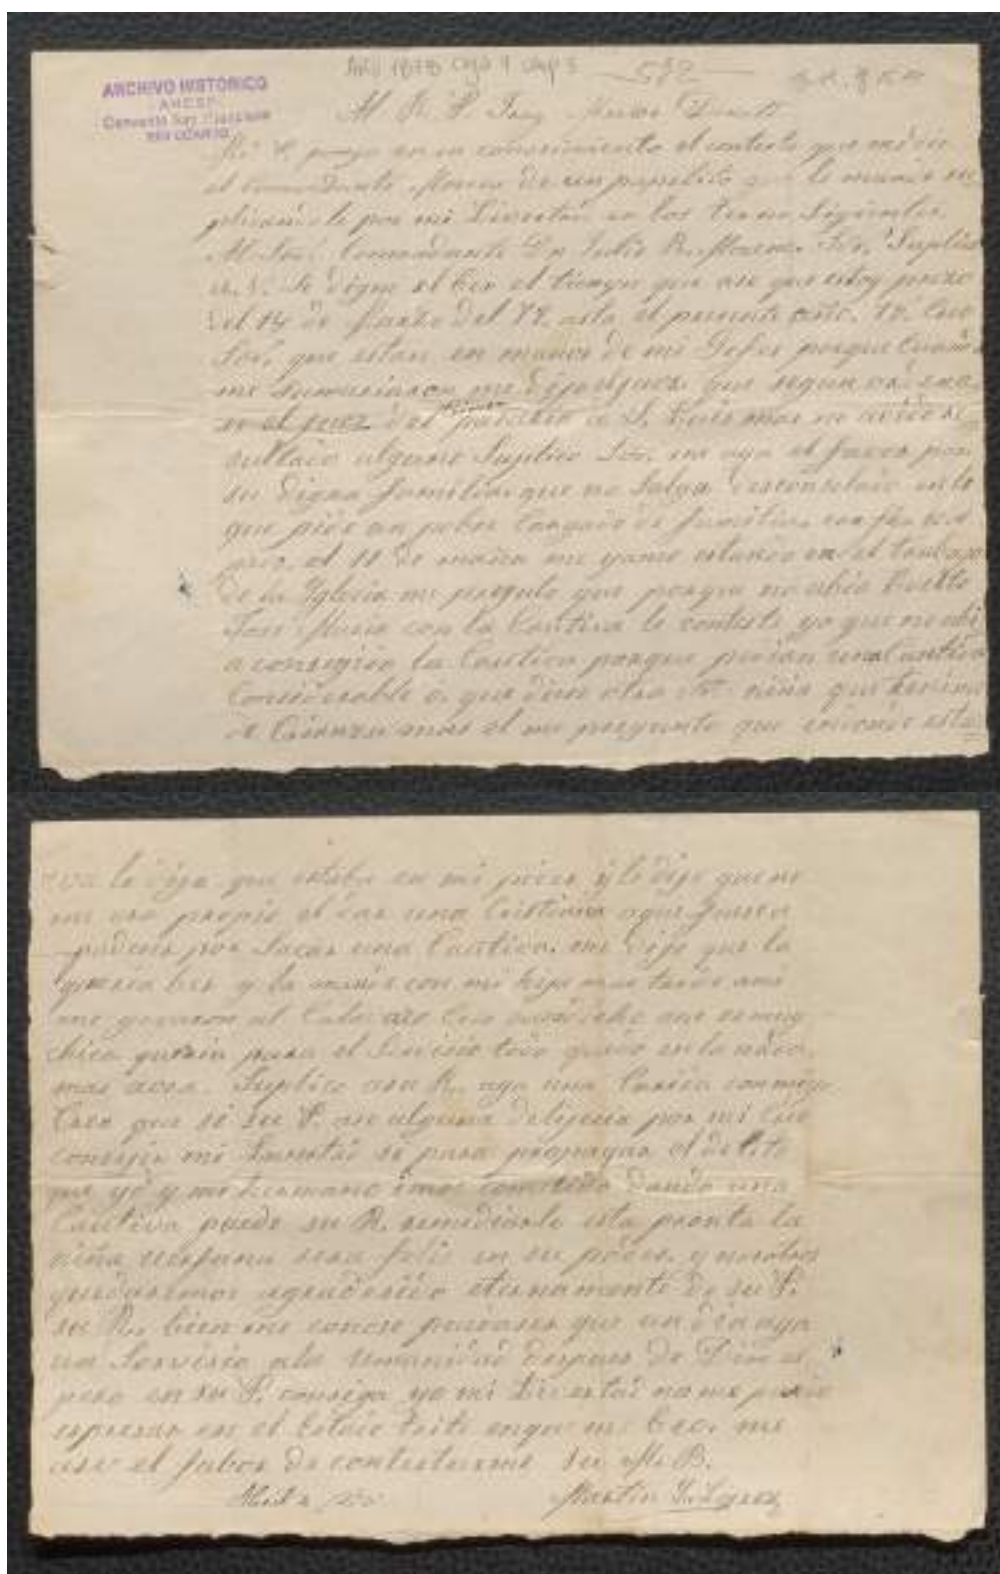 ARCHIVO HISTORICO
Convento San Francisco
RIO CUARTO
Año 1878 caja 9 carp 5
582
M. R. P. Fray Marcos Donati
P. pongo en su conocimiento el contesto que me dio
el Comandante Moreno de un papelito que le mande su
plicandole por mi Livertad en los termino Siguientes
Al Sor. Comandante Dn Julio R. Moreno Sor. Suplico
a. S. Se digne el ber el tiempo que ase que estoy prezo
del 14 de Marzo del 77. asta el presente año. 78. Creo
Sor. que estan en manos de mi Gefes porque Cuando
me sumariaron me dijo que segun
se el juez del pasaria a S. Luis mas no avido re
sultado alguno Suplico Sor. me aga el favor por
su digna familia que no Salga desconsolado en lo
que pide un pobre Cargado de familia con
el 18 de me yamo estando en el trabajo
de la Yglecia me pregunto que porque no abia Buelto
Jose Maria con la Cautiva le conteste yo que no abi
a consegido la Cautiva porque pedian una Cantida
Considerable o que diese otra niña que tenima
de Crianza mas el me pregunto que endonde esta
va le dije que estaba en mi poder y le dije que no
me era propio el dar una Cristiana aque fuera
padeser por Sacar una Cautiva. me dijo que la
queria ber y la mande con mi hija mas tarde ami
me yevaron al Calavoso Creo
chica queria para el Servisio todo quedo en la nada
mas aora. Suplico asu R. aga una Carida conmigo
Creo que si su P. ase alguna delijensia por mi Creo
consigir mi Livertad se para propagar el delito
que yo y mi hermano imos cometido dando una
Cautiva puede su R. remediarlo esta pronta la
niña uerfana sera felis en su poder y nosotros
quedaremos agradesido eternamente de su P.
su R. bien me conose que un dia aga
un Servisio ala umanidad despues de Dios es
pero en su P. consiga yo mi Livertad no me puedo
espresar en el Estado triste enque me beo. me
ase el fabor de contestarme Su M. B.
Martin